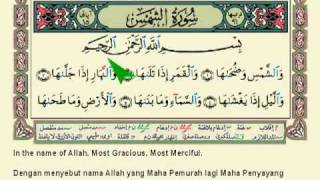 سُورَةُ الشَّمْسِ
بِسْمِ اللَّهِ الرَّحْمَٰنِ الرَّحِيمِ
وَالشَّمْسِ وَضُحَىٰهَا ۝ وَالْقَمَرِ إِذَا تَلَىٰهَا ۝ وَالنَّهَارِ إِذَا جَلَّىٰهَا ۝
وَالَّيْلِ إِذَا يَغْشَىٰهَا ۝ وَالسَّمَآءِ وَمَا بَنَىٰهَا ۝ وَالْأَرْضِ وَمَا طَحَىٰهَا
In the name of Allah, Most Gracious, Most Merciful.
Dengan menyebut nama Allah yang Maha Pemurah lagi Maha Penyayang